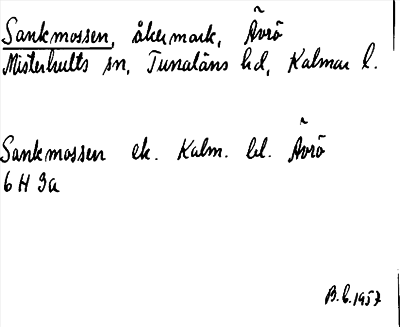 Sankmossen, åkermark, Ävrö
Misterhults sn, Tunaläns hd, Kalmar l.
Sankmossen ek. Kalm. bl. Ävrö
6 H 9a
B.b. 1957